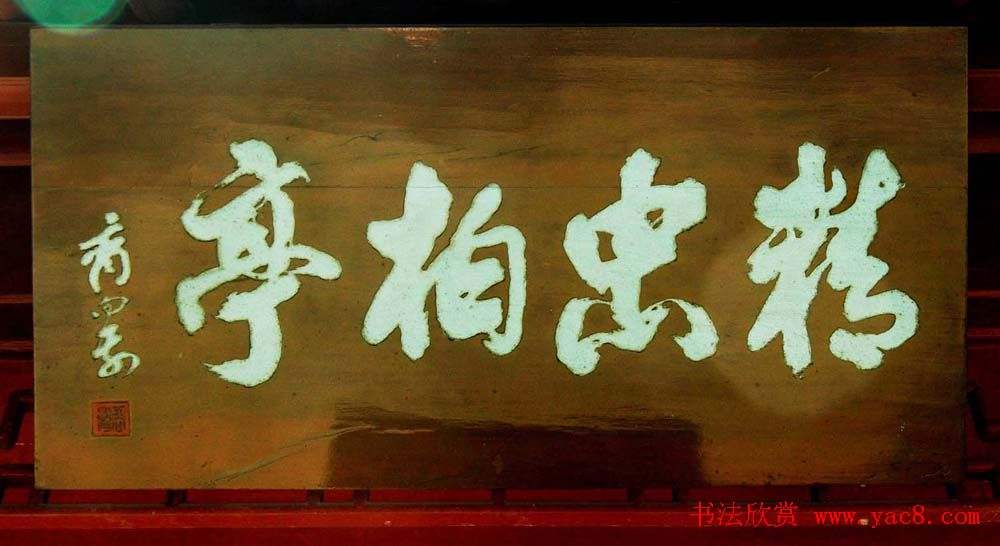 精忠柏亭
商向前
书法欣赏 www.yac8.com